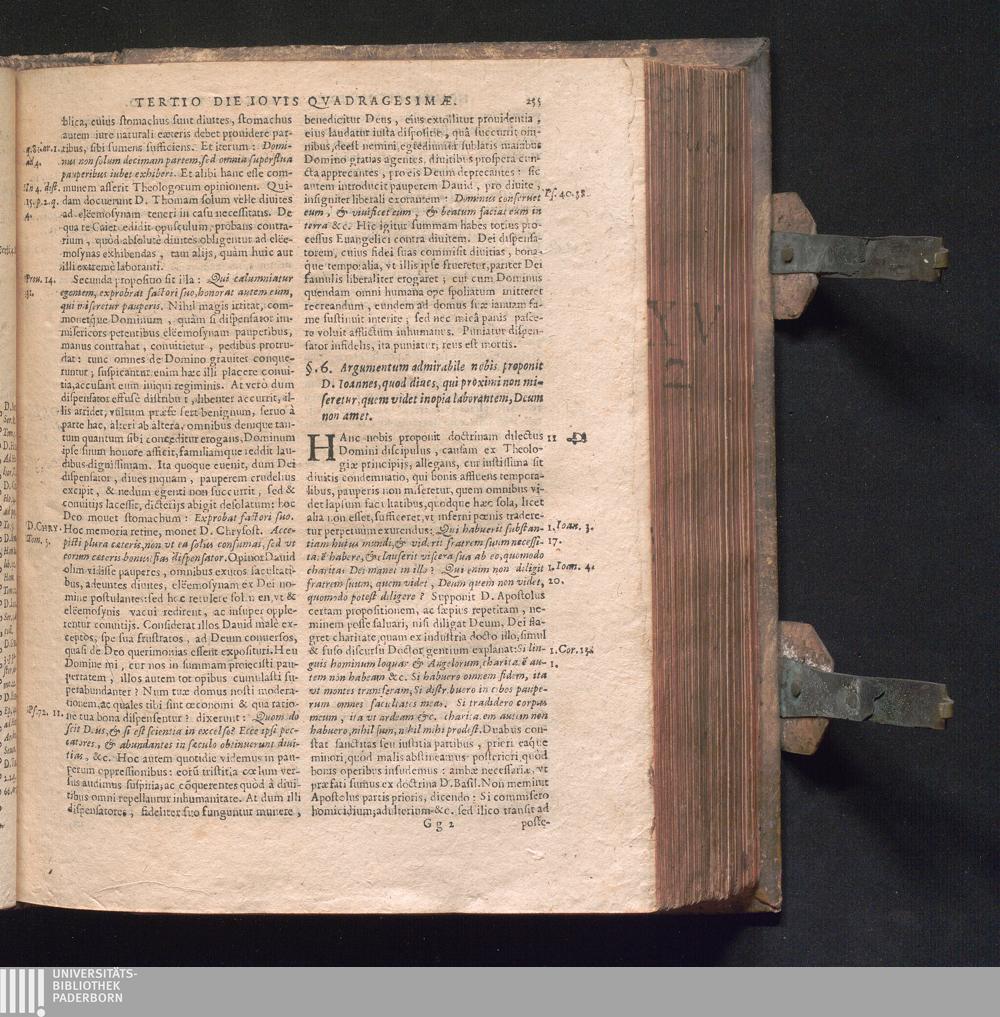 TERTIO DIE IOVIS QVADRAGESIMÆ. 255
blica, cuius stomachus sunt diuites, stomachus
autem iure naturali cæteris debet prouidere par-
tibus, sibi sumens sufficiens. Et iterum: Domi-
nus non solum decimam partem, sed omnia superflua
pauperibus iubet exhiberi. Et alibi hanc esse com-
In 4. dist. munem asserit Theologorum opinionem. Qui-
15. p. 2. q. dam docuerunt D. Thomam solum velle diuites
4. ad eleëmosynam teneri in casu necessitatis. De
qua re Caiet. edidit opusculum, probans contra-
rium, quòd absolutè diuites obligentur ad eleë-
mosynas exhibendas, tam alijs, quàm huic aut
illi extremè laboranti.
Prou. 14. Secunda propositio sit illa: Qui calumniatur
31. egentem, exprobrat factori suo, honorat autem eum,
qui miseretur pauperis. Nihil magis irritat, com-
monetque Dominum, quàm si dispensator im-
misericors petentibus eleëmosynam pauperibus,
manus contrahat, conuitietur, pedibus protru-
dat: tunc omnes de Domino grauiter conque-
runtur; suspicantur enim hæc illi placere conui-
tia, accusant eum iniqui regiminis. At verò dum
dispensator effusè distribuit, libenter accurrit, il-
lis arridet, vultum præfefert benignum, seruo à
parte hac, alteri ab altera, omnibus denique tan-
tum quantum sibi conceditur erogans, Dominum
ipse suum honore afficit, familiamque reddit lau-
dibus dignissimam. Ita quoque euenit, dum Dei
dispensator, diues inquam, pauperem crudelius
excipit, & nedum egenti non succurrit, sed &
conuitijs lacessit, dicterijs abigit desolatum: hoc
Deo mouet stomachum: Exprobrat factori suo.
D. CHRY. Hoc memoria retine, monet D. Chrysost. Acce-
Tom. 5. pisti plura cæteris, non vt ea solus consumas, sed vt
eorum cæteris bonus fias dispensator. Opinor Dauid
olim vidisse pauperes, omnibus exutos facultati-
bus, adeuntes diuites, eleëmosynam ex Dei no-
mine postulantes: sed hoc retulere solùm en, vt &
eleëmosynis vacui redirent, ac insuper opple-
rentur conuitijs. Considerat illos Dauid malè ex-
ceptos, spe sua frustratos, ad Deum conuersos,
quasi de Deo querimonias essent exposituri. Heu
Domine mi, cur nos in summam proiecisti pau-
pertatem, illos autem tot opibus cumulasti su-
perabundanter? Num tuæ domus nosti modera-
tionem, ac quales tibi sint œconomi & qua ratio-
Ps. 72. 11. ne tua bona dispensentur? dixerunt: Quomodo
scit Deus, & si est scientia in excelso? Ecce ipsi pec-
catores, & abundantes in sæculo obtinuerunt diui-
tias, &c. Hoc autem quotidie videmus in pau-
perum oppressionibus: eorū tristitia cœlum ver-
sus audimus suspiria; ac cōquerentes quòd à diui-
tibus omni repellantur inhumanitate. At dum illi
dispensatores, fideliter suo funguntur munere,
benedicitur Deus, eius extollitur prouidentia,
eius laudatur iusta dispositio, quâ succurrit om-
nibus, deest nemini, egrediuntur sublatis manibus
Domino gratias agentes, diuitibus prospera cun-
cta apprecantes, pro eis Deum deprecantes: sic
autem introducit pauperem Dauid, pro diuite, Ps. 40. 38.
insigniter liberali exorantem: Dominus conseruet
eum, & viuificet eum, & beatum faciat eum in
terra &c. Hic igitur summam habes totius pro-
cessus Euangelici contra diuitem. Dei dispensa-
torem, cuius fidei suas commisit diuitias, bona-
que temporalia, vt illis ipse frueretur, pariter Dei
famulis liberaliter erogaret; cui cum Dominus
quendam omni humana ope spoliatum mitteret
recreandum, eundem ad domus suæ ianuam fa-
me sustinuit interire; sed nec micâ panis pasce-
re voluit afflictum inhumanus. Puniatur dispen-
sator infidelis, ita puniatur; reus est mortis.
§. 6. Argumentum admirabile nobis proponit
D. Ioannes, quod diues, qui proximi non mi-
seretur, quem videt inopia laborantem, Deum
non amet.
HAnc nobis proponit doctrinam dilectus 11
Domini discipulus, causam ex Theolo-
giæ principijs, allegans, cur iustissima sit
diuitis condemnatio, qui bonis affluens tempora-
libus, pauperis non miseretur, quem omnibus vi-
det lapsum facultatibus, quodque hæc sola, licet
alia non esset, sufficeret, vt inferni pœnis tradere-
tur perpetuùm exurendus: Qui habuerit substan- 1. Ioan. 3.
tiam huius mundi, & viderit fratrem suum necessi- 17.
tatē habere, & clauserit viscera sua ab eo, quomodo
charitas Dei manet in illo? Qui enim non diligit 1. Ioan. 4.
fratrem suum, quem videt, Deum quem non videt, 20.
quomodo potest diligere? Supponit D. Apostolus
certam propositionem, ac sæpius repetitam, ne-
minem posse saluari, nisi diligat Deum, Dei fla-
gret charitate, quam ex industria docto illo, simul
& fuso discursu Doctor gentium explanat: Si lin- 1. Cor. 13.
guis hominum loquar & Angelorum, charitatē au- 1.
tem non habeam &c. Si habuero omnem fidem, ita
vt montes transferam, Si distribuero in cibos paupe-
rum omnes facultates meas, Si tradidero corpus
meum, ita vt ardeam &c. charitatem autem non
habuero, nihil sum, nihil mihi prodest. Duabus con-
stat sanctitas seu iustitia partibus, priori eaque
minori, quòd malis abstineamus: posteriori, quòd
bonis operibus insudemus: ambæ necessariæ, vt
præfati sumus ex doctrina D. Basil. Non meminit
Apostolus partis prioris, dicendo: Si commisero
homicidium; adulterium &c. sed illico transit ad
Gg 2 poste-
XV
2
UNIVERSITÄTS-
BIBLIOTHEK
PADERBORN